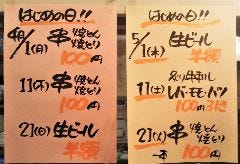 はじめの日!!
4月/1(月) 串 焼とん 焼とり
100円
11(木) 串 焼とん 焼とり
100円
21(日) 生ビール
半額
はじめの日!!
5/1(木) 生ビール
半額
11(土)
レバーモーパツ
100の3倍
21(火) 串 焼とん 焼とり
一本 100円